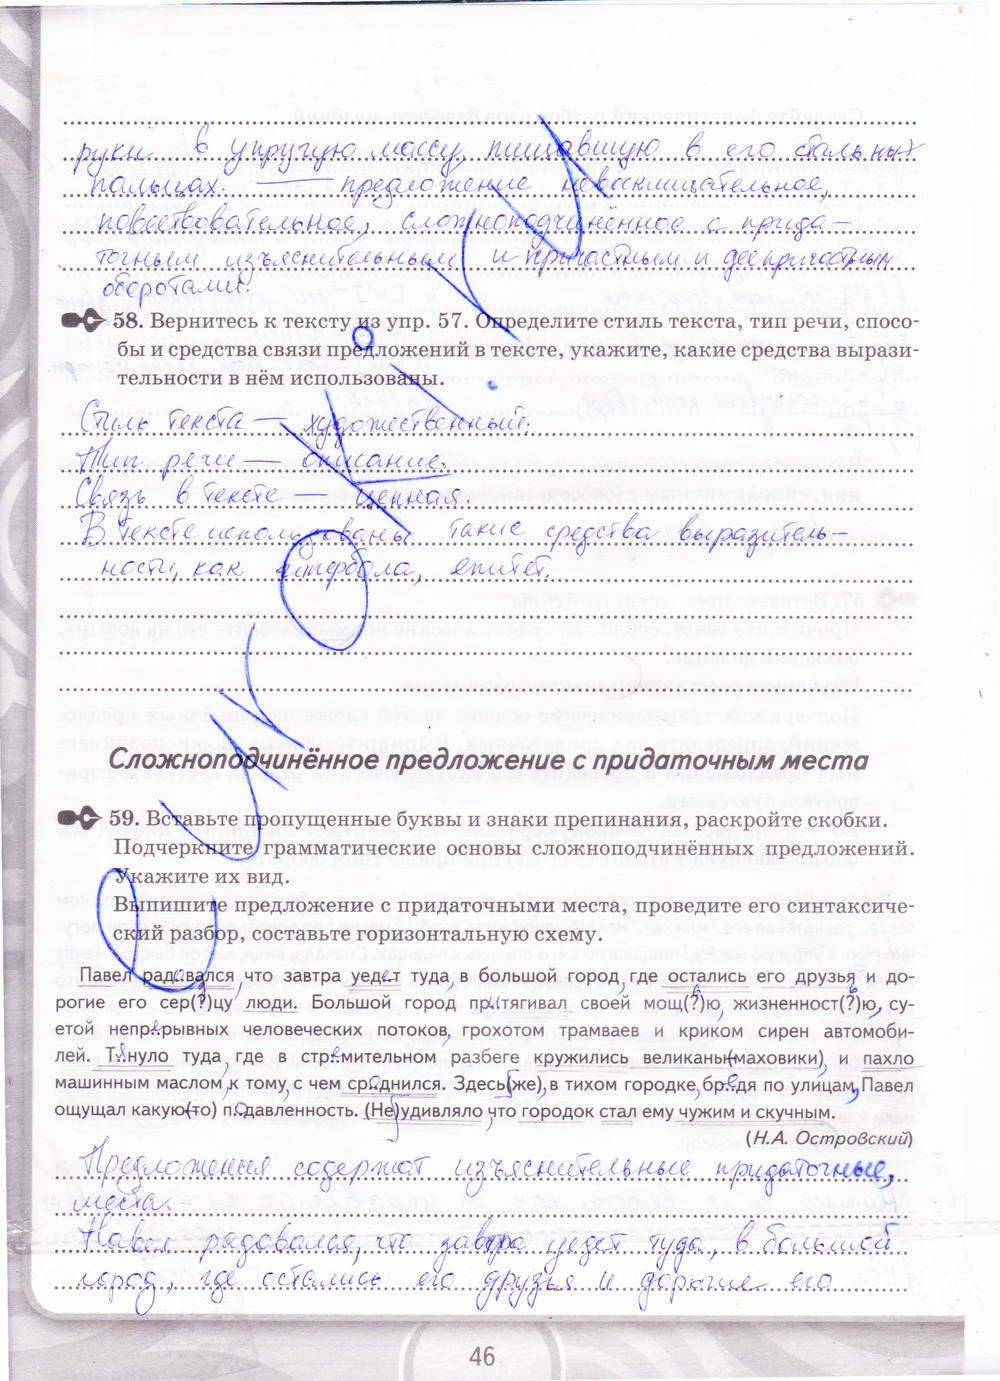 руки в упругую массу, пищавшую в его стальных
пальцах. — предложение невосклицательное,
повествовательное, сложноподчинённое с прида-
точным изъяснительным и причастным и деепричастным
оборотами.
58. Вернитесь к тексту из упр. 57. Определите стиль текста, тип речи, спосо-
бы и средства связи предложений в тексте, укажите, какие средства вырази-
тельности в нём использованы.
Стиль текста — художественный.
Тип речи — описание.
Связь в тексте — цепная.
В тексте использованы такие средства выразитель-
ности, как гипербола, эпитет.
Сложноподчинённое предложение с придаточным места
59. Вставьте пропущенные буквы и знаки препинания, раскройте скобки.
Подчеркните грамматические основы сложноподчинённых предложений.
Укажите их вид.
Выпишите предложение с придаточными места, проведите его синтаксиче-
ский разбор, составьте горизонтальную схему.
Павел радовался, что завтра уедет туда, в большой город, где остались его друзья и до-
рогие его сер(?)цу люди. Большой город притягивал своей мощ(?)ю, жизненност(?)ю, су-
етой непрерывных человеческих потоков, грохотом трамваев и криком сирен автомоби-
лей. Тянуло туда, где в стремительном разбеге кружились великаны-(маховики), и пахло
машинным маслом, к тому, с чем сроднился. Здесь(же), в тихом городке, бредя по улицам, Павел
ощущал какую-(то) подавленность. (Не)удивляло, что городок стал ему чужим и скучным.
(Н.А. Островский)
Предложения содержат изъяснительные придаточные,
места.
Павел радовался, что завтра уедет туда, в большой
город, где остались его друзья и дорогие его
46
euroki.ru